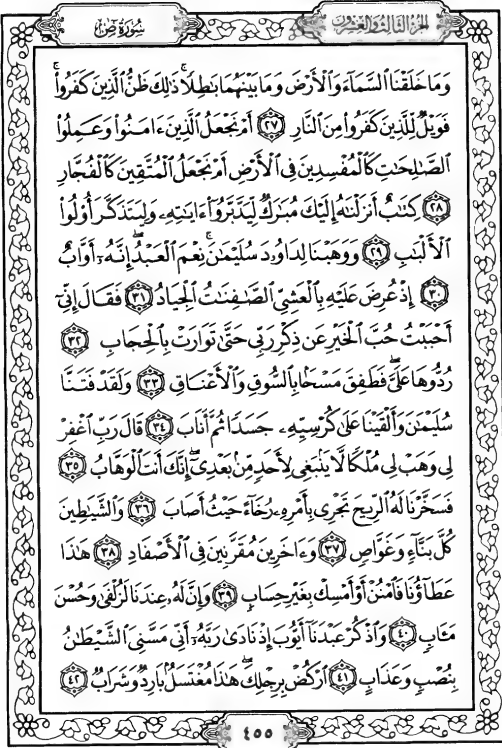 الجزء الثالث والعشرون
سورة ص
وَمَا خَلَقْنَا السَّمَاءَ وَالْأَرْضَ وَمَا بَيْنَهُمَا بَاطِلًا ذَٰلِكَ ظَنُّ الَّذِينَ كَفَرُوا
فَوَيْلٌ لِّلَّذِينَ كَفَرُوا مِنَ النَّارِ ٢٧ أَمْ نَجْعَلُ الَّذِينَ ءَامَنُوا وَعَمِلُوا
الصَّٰلِحَٰتِ كَالْمُفْسِدِينَ فِي الْأَرْضِ أَمْ نَجْعَلُ الْمُتَّقِينَ كَالْفُجَّارِ
٢٨ كِتَٰبٌ أَنزَلْنَٰهُ إِلَيْكَ مُبَٰرَكٌ لِّيَدَّبَّرُوا ءَايَٰتِهِ وَلِيَتَذَكَّرَ أُولُوا
الْأَلْبَٰبِ ٢٩ وَوَهَبْنَا لِدَاوُدَ سُلَيْمَٰنَ نِعْمَ الْعَبْدُ إِنَّهُ أَوَّابٌ
٣٠ إِذْ عُرِضَ عَلَيْهِ بِالْعَشِيِّ الصَّٰفِنَٰتُ الْجِيَادُ ٣١ فَقَالَ إِنِّي
أَحْبَبْتُ حُبَّ الْخَيْرِ عَن ذِكْرِ رَبِّي حَتَّىٰ تَوَارَتْ بِالْحِجَابِ ٣٢
رُدُّوهَا عَلَيَّ فَطَفِقَ مَسْحًا بِالسُّوقِ وَالْأَعْنَاقِ ٣٣ وَلَقَدْ فَتَنَّا
سُلَيْمَٰنَ وَأَلْقَيْنَا عَلَىٰ كُرْسِيِّهِ جَسَدًا ثُمَّ أَنَابَ ٣٤ قَالَ رَبِّ اغْفِرْ
لِي وَهَبْ لِي مُلْكًا لَّا يَنبَغِي لِأَحَدٍ مِّن بَعْدِي إِنَّكَ أَنتَ الْوَهَّابُ ٣٥
فَسَخَّرْنَا لَهُ الرِّيحَ تَجْرِي بِأَمْرِهِ رُخَاءً حَيْثُ أَصَابَ ٣٦ وَالشَّيَٰطِينَ
كُلَّ بَنَّاءٍ وَغَوَّاصٍ ٣٧ وَءَاخَرِينَ مُقَرَّنِينَ فِي الْأَصْفَادِ ٣٨ هَٰذَا
عَطَاؤُنَا فَامْنُنْ أَوْ أَمْسِكْ بِغَيْرِ حِسَابٍ ٣٩ وَإِنَّ لَهُ عِندَنَا لَزُلْفَىٰ وَحُسْنَ
مَـَٔابٍ ٤٠ وَاذْكُرْ عَبْدَنَا أَيُّوبَ إِذْ نَادَىٰ رَبَّهُ أَنِّي مَسَّنِيَ الشَّيْطَٰنُ
بِنُصْبٍ وَعَذَابٍ ٤١ ارْكُضْ بِرِجْلِكَ هَٰذَا مُغْتَسَلٌ بَارِدٌ وَشَرَابٌ ٤٢
٤٥٥